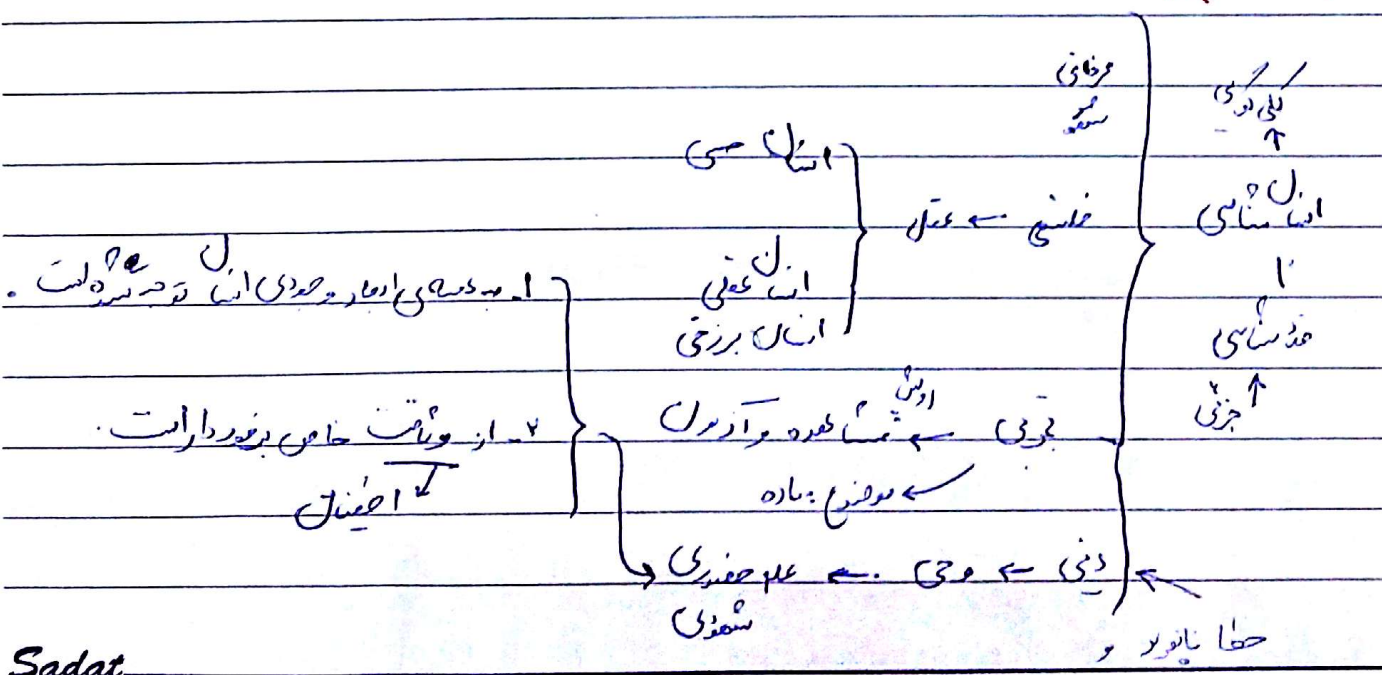 کلی نگری
انسان شناسی
یا
خودشناسی
جزئی
عرفانی
شهود
فلسفی ← عقل
انسان حسی
انسان عقلی
انسان برزخی
تجربی ← روش: مشاهده و آزمون
← موضوع: ماده
دینی ← وحی ← علم حضوری
شهودی
خطا ناپذیر و
۱- به همه ی ابعاد وجودی انسان توجه شده است.
۲- از وثاقت خاص برخوردار است.
اطمینان
Sadat